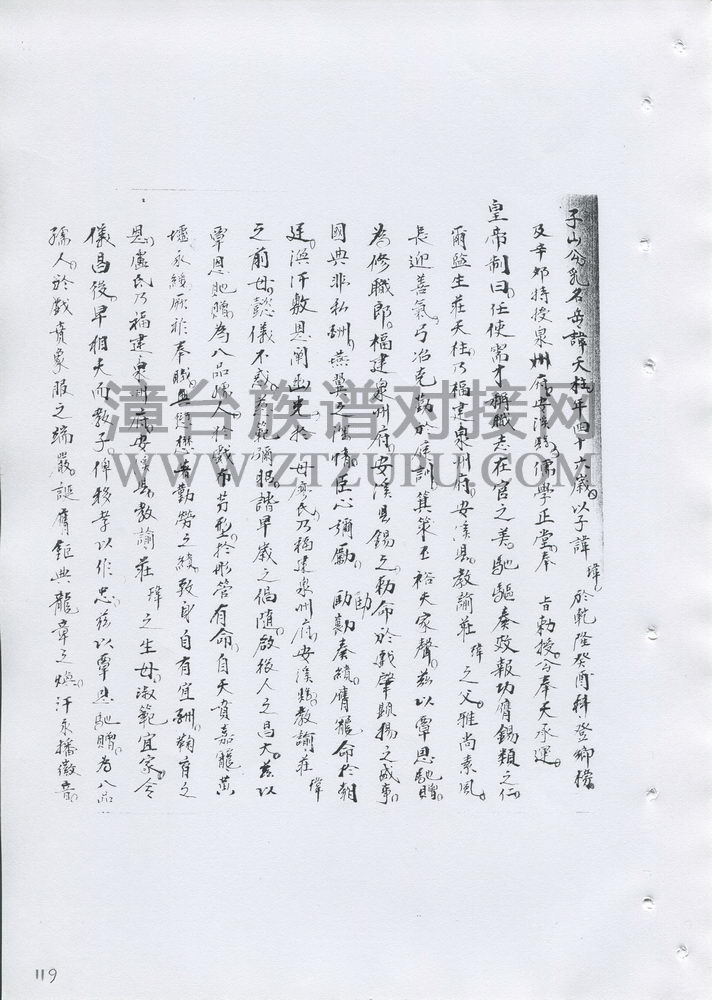 子山公乳名岳諱天柱年四十六歲以子諱瑋於乾隆癸酉科登鄉榜
及辛卯特授泉州府安溪縣儒學正堂奉 旨勅授公奉天承運
皇帝制曰任使需才稱職志在官之美馳驅奏效報功膺錫類之仁
爾監生莊天柱乃福建泉州府安溪縣教諭莊瑋之父雅尚素風
長迎善氣弓冶克勤於庭訓箕裘丕裕夫家聲茲以覃恩馳贈
為修職郎福建泉州府安溪縣錫之勅命於戲肇顯揚之盛事
國典非私酬燕翼之深情臣心彌勵 勛勷奏績膺寵命於朝
廷渙汗敷恩闡出光於母廖氏乃福建泉州府安溪縣教諭莊瑋
之前母懿儀不忒茲範彌昭諧早歲之偕隨啟後人之昌大茲以
覃恩馳贈為八品孺人於戲布芳型於彤管有命自天賁嘉寵黃
壚永綏厥祚奉職無愆懋著勤勞之績致身自有宜酬鞠育之
恩盧氏乃福建泉州府安溪縣教諭莊瑋之生母淑範宜家令
儀昌後早相夫而教子俾移孝以作忠茲以覃恩馳贈為八品
孺人於戲賁象服之端嚴誕膺鉅典龍章之煥汗永播徽音
漳台族谱对接网
WWW.ZTZUPU.COM
119